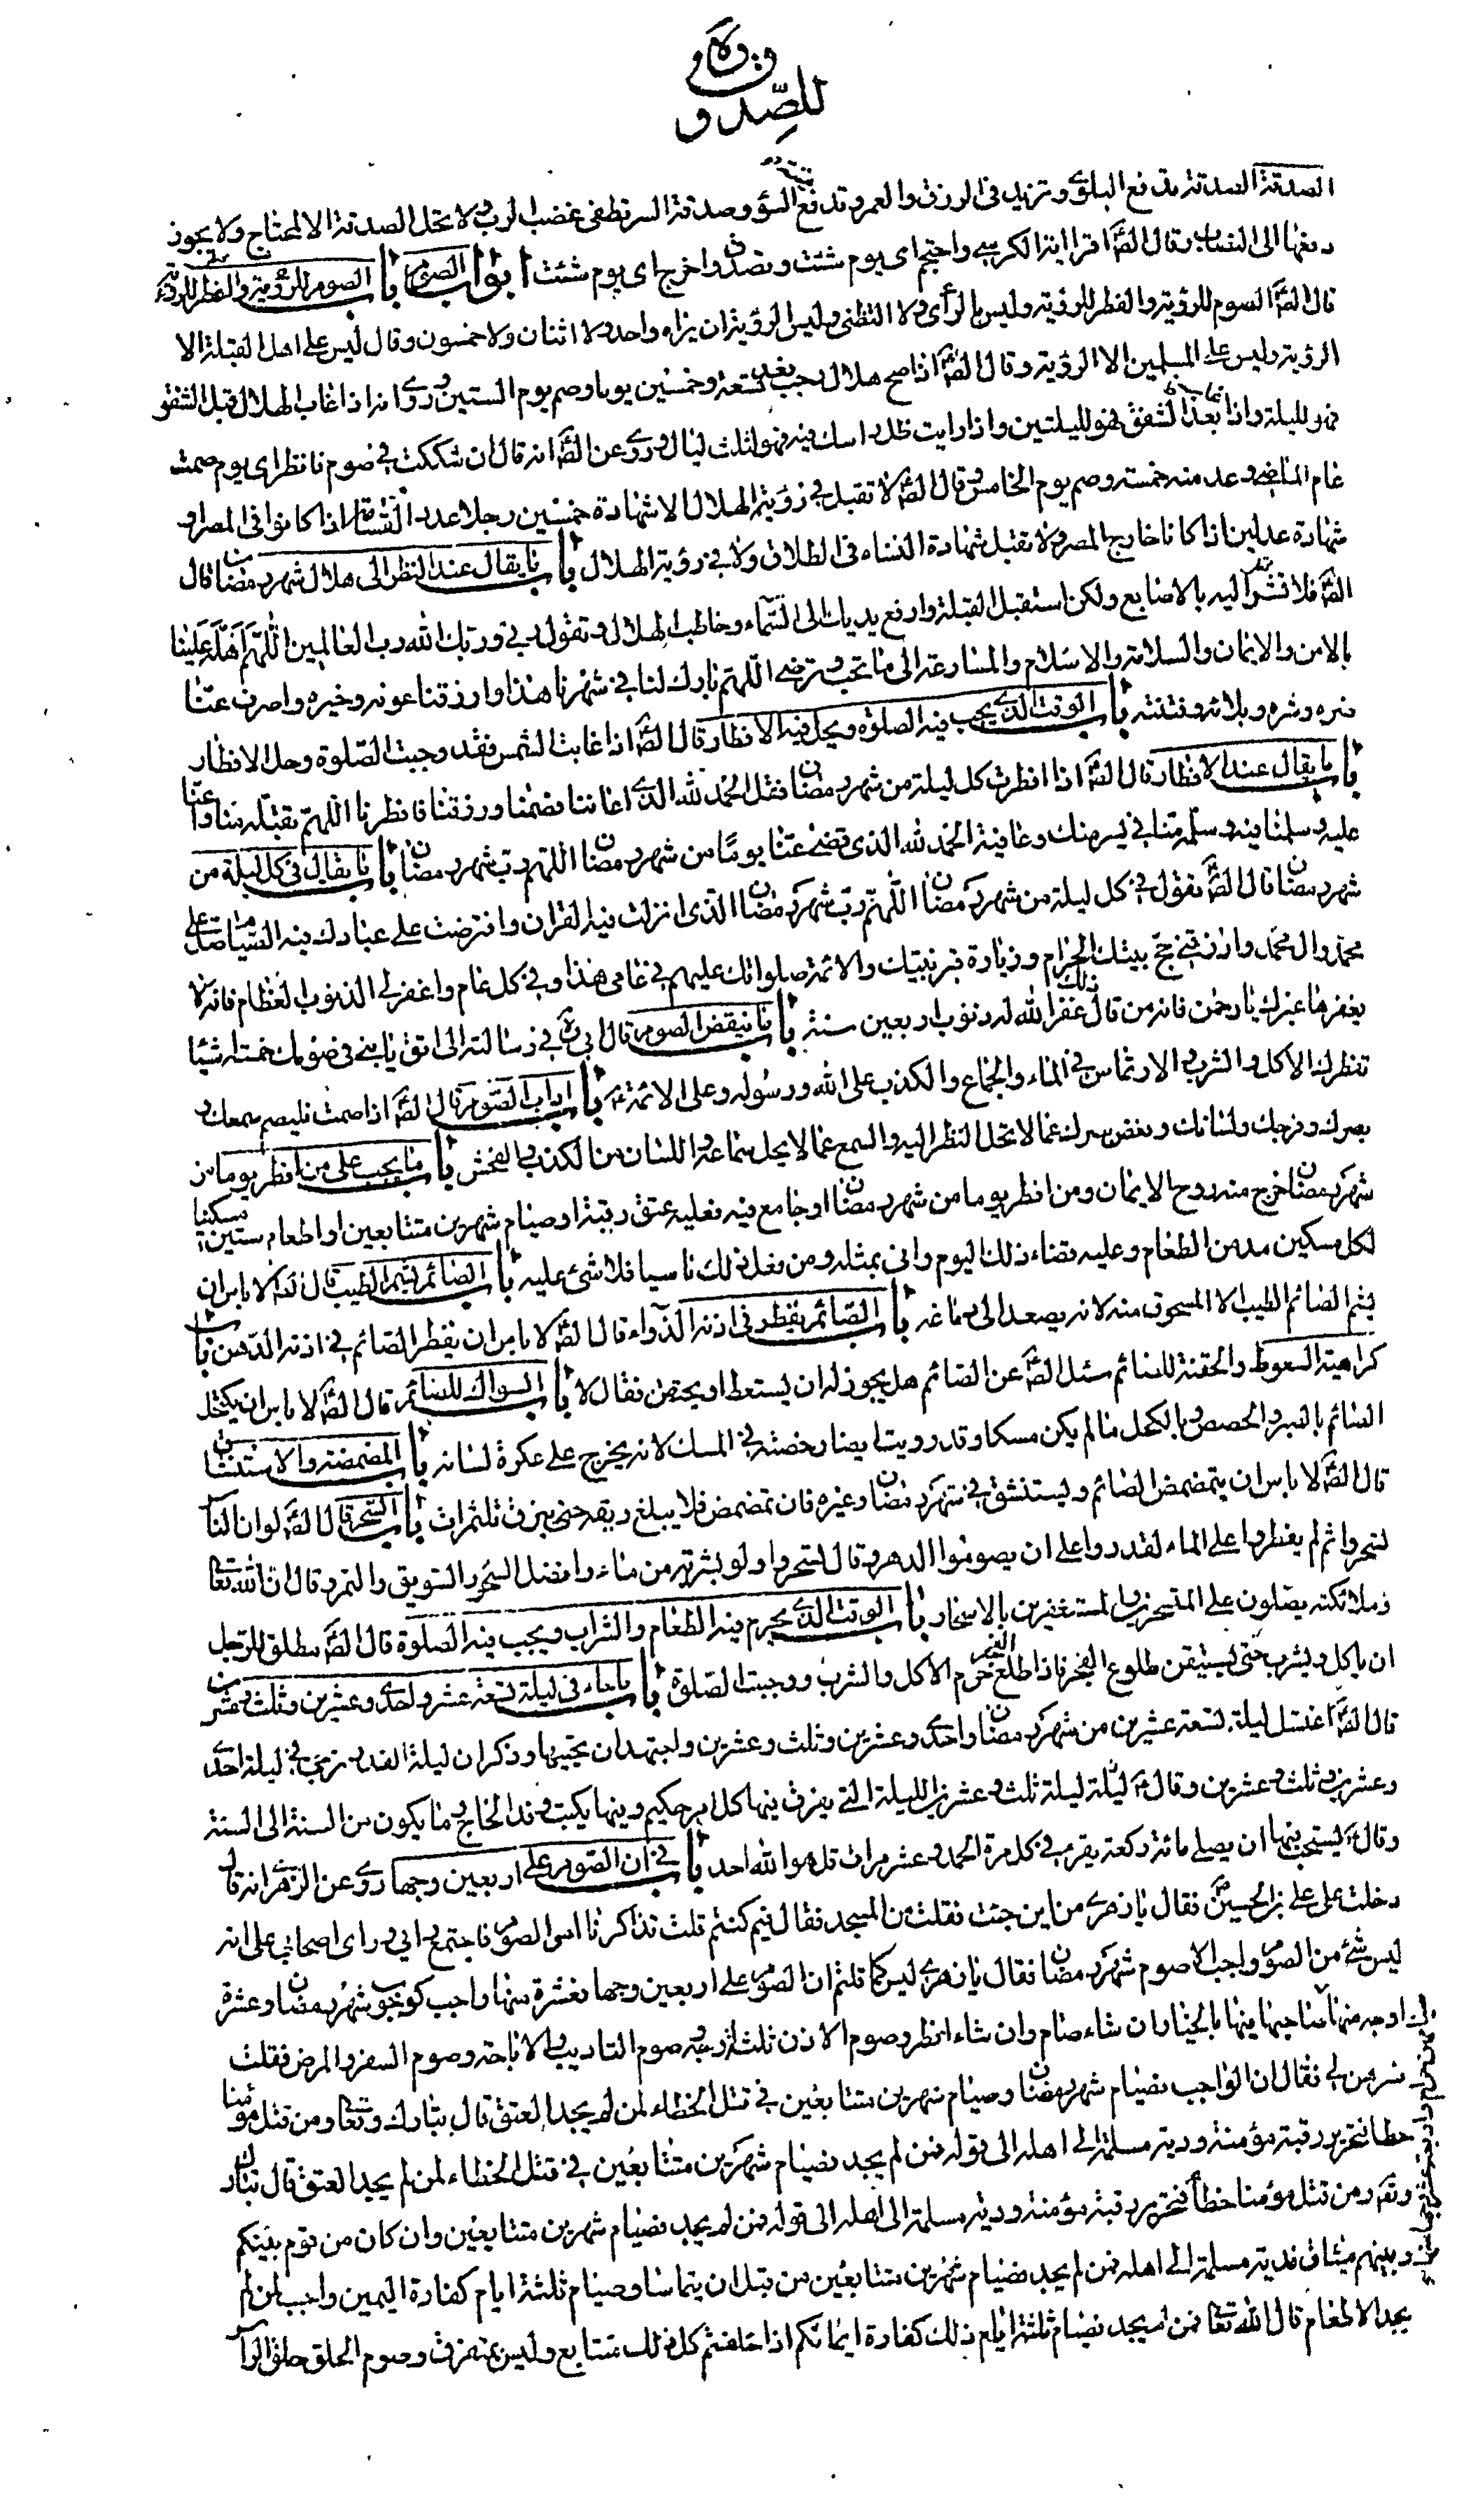 للصدوق
الصدقة الصدقة تدفع البلوى وتزيد فى الرزق والعمر وتدفع ميتة السوء وصدقة السر تطفى غضب الرب ولا تحل الصدقة الا لمحتاج ولا يجوز
دفعها الى النصاب وقال الصّ اقرا اية الكرسى واحتجم اى يوم شئت وتصدق واخرج اى يوم شئت ابواب الصوم باب الصوم للرؤية والفطر للرؤية
قال الصّ الصوم للرؤية والفطر للرؤية وليس بالرأى ولا التظنى وليس الرؤية ان يراه واحد ولا اثنان ولا خمسون وقال ليس على اهل القبلة الا
الرؤية وليس على المسلمين الا الرؤية وقال الصّ اذا صح هلال رجب فعد تسعة وخمسين يوما وصم يوم الستين وروى انه اذا غاب الهلال قبل الشفق
فهو لليلة واذا غاب بعد الشفق فهو لليلتين واذا رايت ظل راسك فيه فهو لثلث ليال وروى عن الصّ انه قال ان شككت فى صوم فانظر اى يوم صمت
عام الماضى وعد منه خمسة وصم يوم الخامس وقال الصّ لا تقبل فى رؤية الهلال الا شهادة خمسين رجلا عدد القسامة اذا كانوا فى المصر او
شهادة عدلين اذا كانا خارج المصر ولا تقبل شهادة النساء فى الطلاق ولا فى رؤية الهلال باب ما يقال عند النظر الى هلال شهر رمضان قال
الصّ فلا تشر اليه بالاصابع ولكن استقبل القبلة وارفع يديك الى السّماء وخاطب الهلال وتقول ربى وربك الله رب العالمين اللّهمّ اهلّه علينا
بالامن والايمان والسلامة والاسلام والمسارعة الى ما تحب وترضى اللّهمّ بارك لنا فى شهرنا هذا وارزقنا عونه وخيره واصرف عنّا
ضره وشره وبلائه وفتنته باب الوقت الذى يجب فيه الصلوة ويحل فيه الافطار قال الصّ اذا غابت الشمس فقد وجبت الصّلوة وحل الافطار
باب ما يقال عند الافطار قال الصّ اذا افطرت كل ليلة من شهر رمضان فقل الحمد لله الذى اعاننا فصمنا ورزقنا فافطرنا اللّهمّ تقبّله منا واعنّا
عليه وسلمنا فيه وسلمه منا فى يسر منك وعافية الحمد لله الذى قضى عنّا يوما من شهر رمضان اللّهمّ رب شهر رمضان باب ما يقال فى كل ليلة من
شهر رمضان قال الصّ تقول فى كل ليلة من شهر رمضان اللّهمّ ربّ شهر رمضان الذى انزلت فيه القران وافترضت على عبادك فيه الصّيام صل على
محمد وال محمد وارزقنى حجّ بيتك الحرام وزيارة قبر نبيك والائمة صلواتك عليهم فى عامى هذا وفى كل عام واغفر لى الذنوب العظام فانه لا
يغفرها غيرك يا رحمن فانه من قال ذلك غفر الله له ذنوب اربعين سنة باب ما ينقض الصوم قال ابى ره فى رسالته الى اتق يا بنى فى صومك خمسة اشيا
تفطرك الاكل والشرب والارتماس فى الماء والجماع والكذب على الله ورسوله وعلى الائمة باب اداب الصّوم قال الصّ اذا صمت فليصم سمعك و
بصرك وفرجك ولسانك وتغض بصرك عما لا يحل النظر اليه والسمع عما لا يحل سماعه واللسان من الكذب والفحش باب ما يجب على من افطر يوما من
شهر رمضان خرج منه روح الايمان ومن افطر يوما من شهر رمضان او جامع فيه فعليه عتق رقبة او صيام شهرين متتابعين او اطعام ستين مسكينا
لكل مسكين مد من الطعام وعليه قضاء ذلك اليوم وانى بمثله ومن فعل ذلك ناسيا فلا شئ عليه باب الصائم يشم الطيب قال الصّ لا باس ان
يشم الصائم الطيب الا المسحوق منه لانه يصعد الى دماغه باب الصّائم يقطر فى اذنه الدّواء قال الصّ لا باس ان يقطر الصائم فى اذنه الدّهن باب
كراهية السعوط والحقنة للصائم سئل الصّ عن الصائم هل يجوز له ان يستعط او يحتقن فقال لا باب السواك للصائم قال الصّ لا باس ان يكتحل
الصائم بالصبر والحصص وبالكحل ما لم يكن مسكا وقد رويت ايضا رخصة فى المسك لانه يخرج على عكرة لسانه باب المضمضة والاستنشاق
قال الصّ لا باس ان يتمضمض الصائم ويستنشق فى شهر رمضان وغيره فان تمضمض فلا يبلغ ريقه حتى يبزق ثلث مرات باب السّحر قال الصّ لو ان الناس
تسحروا ثم لم يفطروا على الماء لقدروا على ان يصوموا الدهر وقال تسحروا ولو بشربة من ماء وافضل السّحور السّويق والتمر وقال ان الله تعالى
وملائكته يصلون على المتسحرين والمستغفرين بالاسحار باب الوقت الذى يحرم فيه الطعام والشراب ويجب فيه الصّلوة قال الصّ مطلق للرجل
ان ياكل ويشرب حتى يستيقن طلوع الفجر فاذا طلع الفجر حرم الاكل والشرب ووجبت الصّلوة باب ما جاء فى ليلة تسعة عشر واحدى وعشرين وثلث وعشرين
قال الصّ اغتسل ليلة تسعة عشرين من شهر رمضان واحدى وعشرين وثلث وعشرين واجتهد ان تحييها وذكر ان ليلة القدر ترجى فى ليلة احدى
وعشرين وثلث وعشرين وقال ليلة ثلث وعشرين الليلة التى يفرق فيها كل امر حكيم وفيها يكتب وفد الحاج وما يكون من السنة الى السنة
وقال يستحب فيها ان يصلى مائة ركعة يقرء فى كل مرة الحمد وعشر مرات قل هو الله احد باب فى ان الصّوم على اربعين وجها روى عن الزهرى انه قال
دخلت على على بن الحسين فقال يا زهرى من اين جئت فقلت من المسجد فقال فيم كنتم قلت تذاكرنا امر الصوم فاجتمع رايى وراى اصحابى على انه
ليس شئ من الصوم واجب الا صوم شهر رمضان فقال يا زهرى ليس كما قلتم ان الصوم على اربعين وجها فعشرة منها واجب كوجوب شهر رمضان وعشرة
اوجه منها صاحبها فيها بالخيار ان شاء صام وان شاء افطر وصوم الاذن ثلثة اوجه وصوم التاديب والاباحة وصوم السفر والمرض فقلت
فسرهن لى فقال ان الواجب فصيام شهر رمضان وصيام شهرين متتابعين فى قتل الخطاء لمن لم يجد العتق قال تبارك وتعالى ومن قتل مؤمنا
خطا فتحرير رقبة مؤمنة ودية مسلمة الى اهله الى قوله فمن لم يجد فصيام شهرين متتابعين فى قتل الخطاء لمن لم يجد العتق قال تبارك
وتعالى ومن قتل مؤمنا خطأ فتحرير رقبة مؤمنة ودية مسلمة الى اهله الى قوله فمن لم يجد فصيام شهرين متتابعين وان كان من قوم بينكم
وبينهم ميثاق فدية مسلمة الى اهله فمن لم يجد فصيام شهرين متتابعين من قبل ان يتماسا وصيام ثلثة ايام كفارة اليمين واجب لمن لم
يجد الاطعام قال الله تعالى فمن لم يجد فصيام ثلثة ايام ذلك كفارة ايمانكم اذا حلفتم كل ذلك متتابع وليس بمتفرق وصوم الحلق حلق الرأ